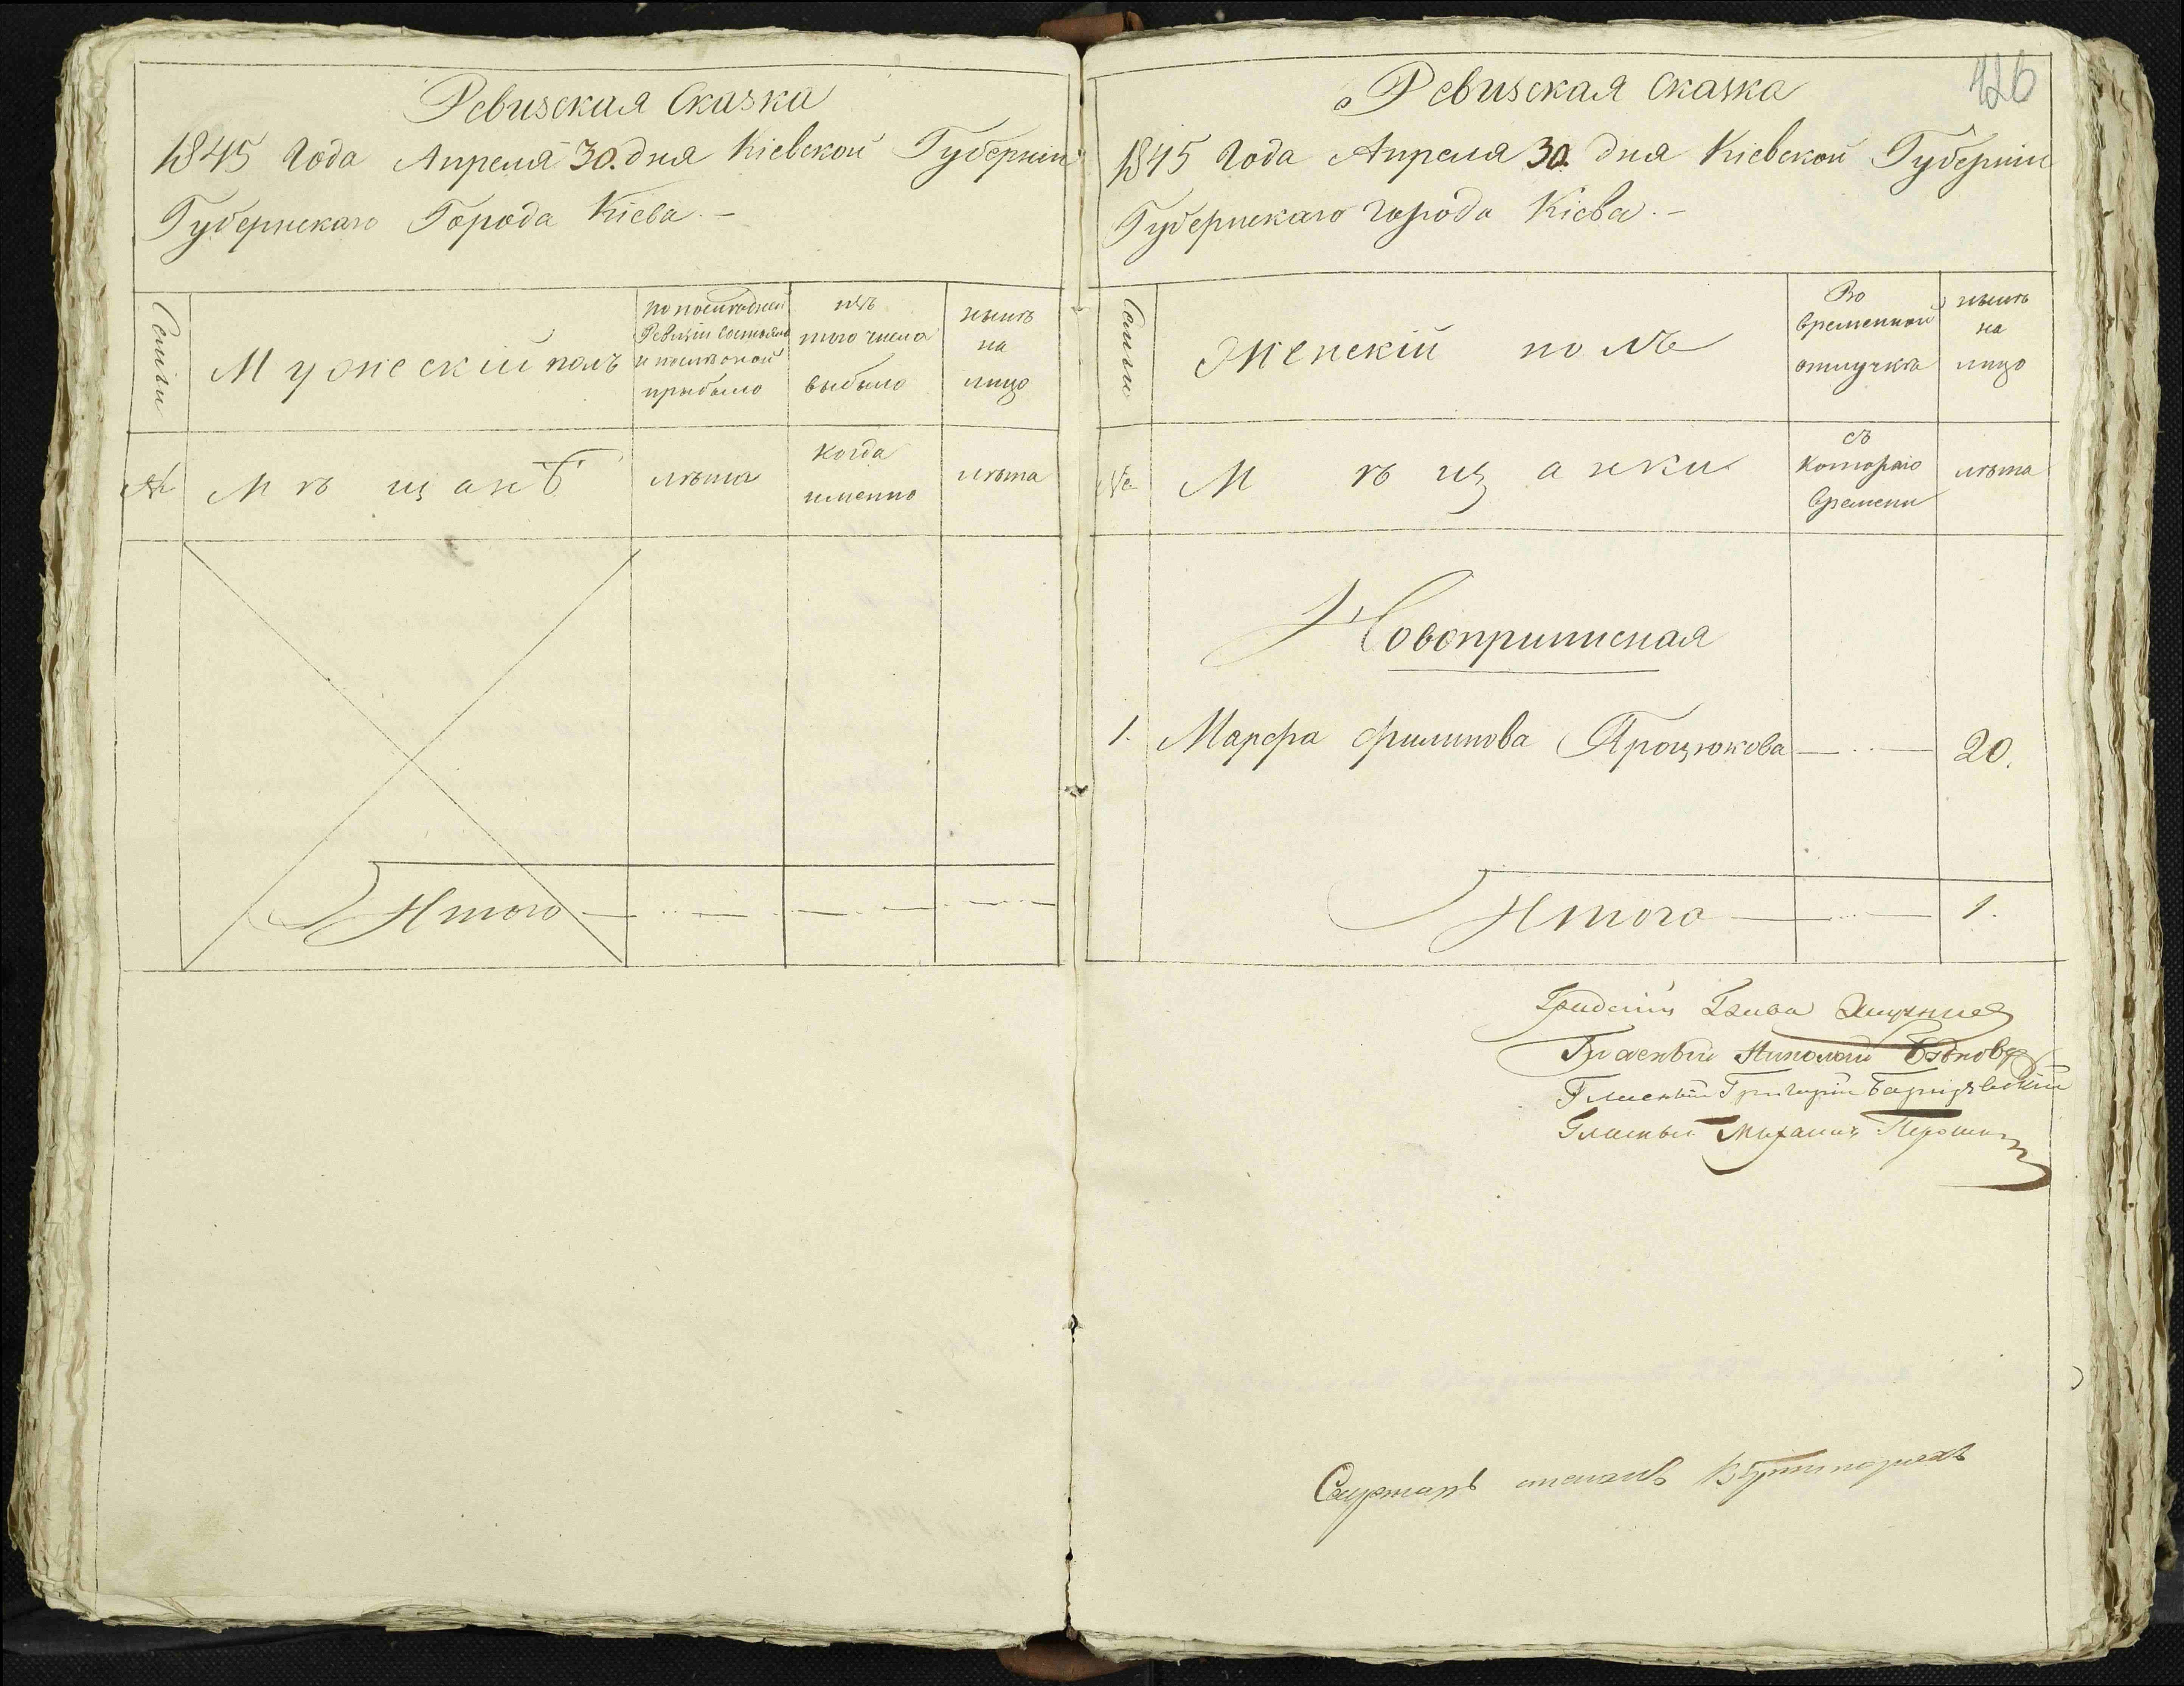 Ревизская Сказка
1845 Года Апреля 30. дня Кіевской Губерніи
Губернскаго Города Кіева. –
Семьи
Мужескій полъ
по последней
Ревизіи состояло
и после оной
прибыло
изъ
того числа
выбыло
нынѣ
на
лицо
№
Мѣщанѣ
лѣта
когда
именно
лѣта
Итого
426
Ревизская Сказка
1845 Года Апреля 30. дня Кіевской Губерніи
Губернскаго города Кіева. –
Семьи
Женскій полъ
Во
временной
отлучкѣ
нынѣ
на
лицо
№
Мѣщанки
съ
котораго
времени
лѣта
Новоприписная
1. Марфа Филипова Процюкова 20.
Итого 1.
Градскій Глава
Гласный Николай
Гласный Григорій
Гласный Михаилъ